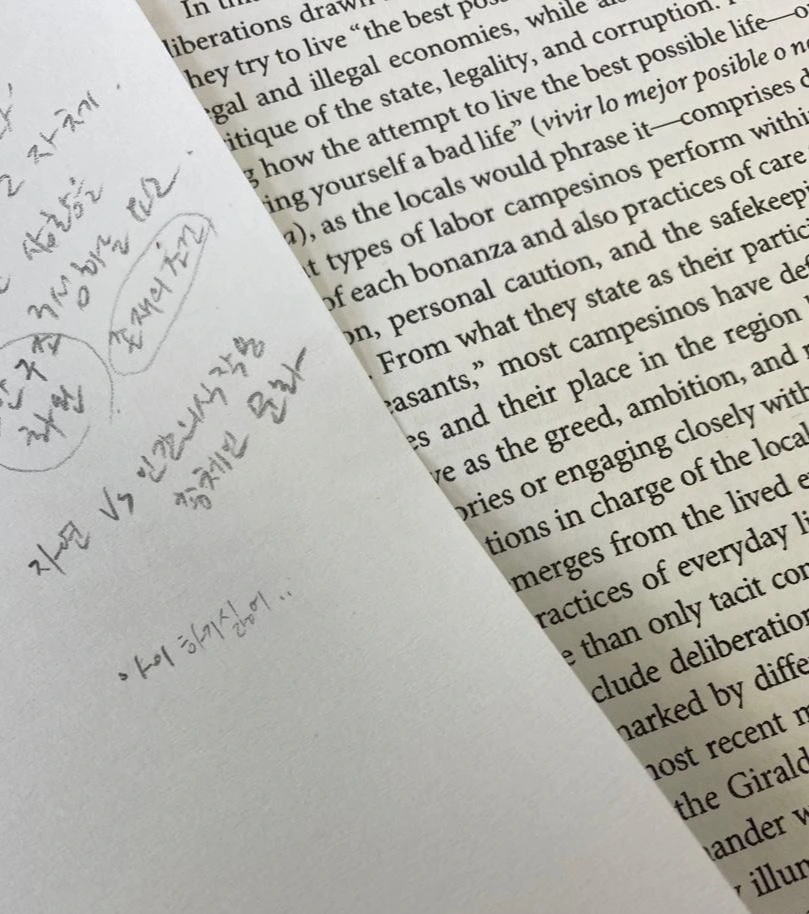 자기.
상황을
구성하는
존재의 조건
자연 vs 인간의식작용
총체인 문화
아이 하기싫어..
In th
liberations drawn
hey try to live “the best pos
gal and illegal economies, while al
itique of the state, legality, and corruption.
g how the attempt to live the best possible life—o
ing yourself a bad life” (vivir lo mejor posible o no
a), as the locals would phrase it—comprises d
t types of labor campesinos perform withi
of each bonanza and also practices of care
on, personal caution, and the safekeepi
. From what they state as their partici
easants,” most campesinos have def
es and their place in the region
ve as the greed, ambition, and
ories or engaging closely with
tions in charge of the local
merges from the lived e
ractices of everyday li
e than only tacit con
clude deliberation
narked by differ
nost recent m
the Girald
ander w
illum